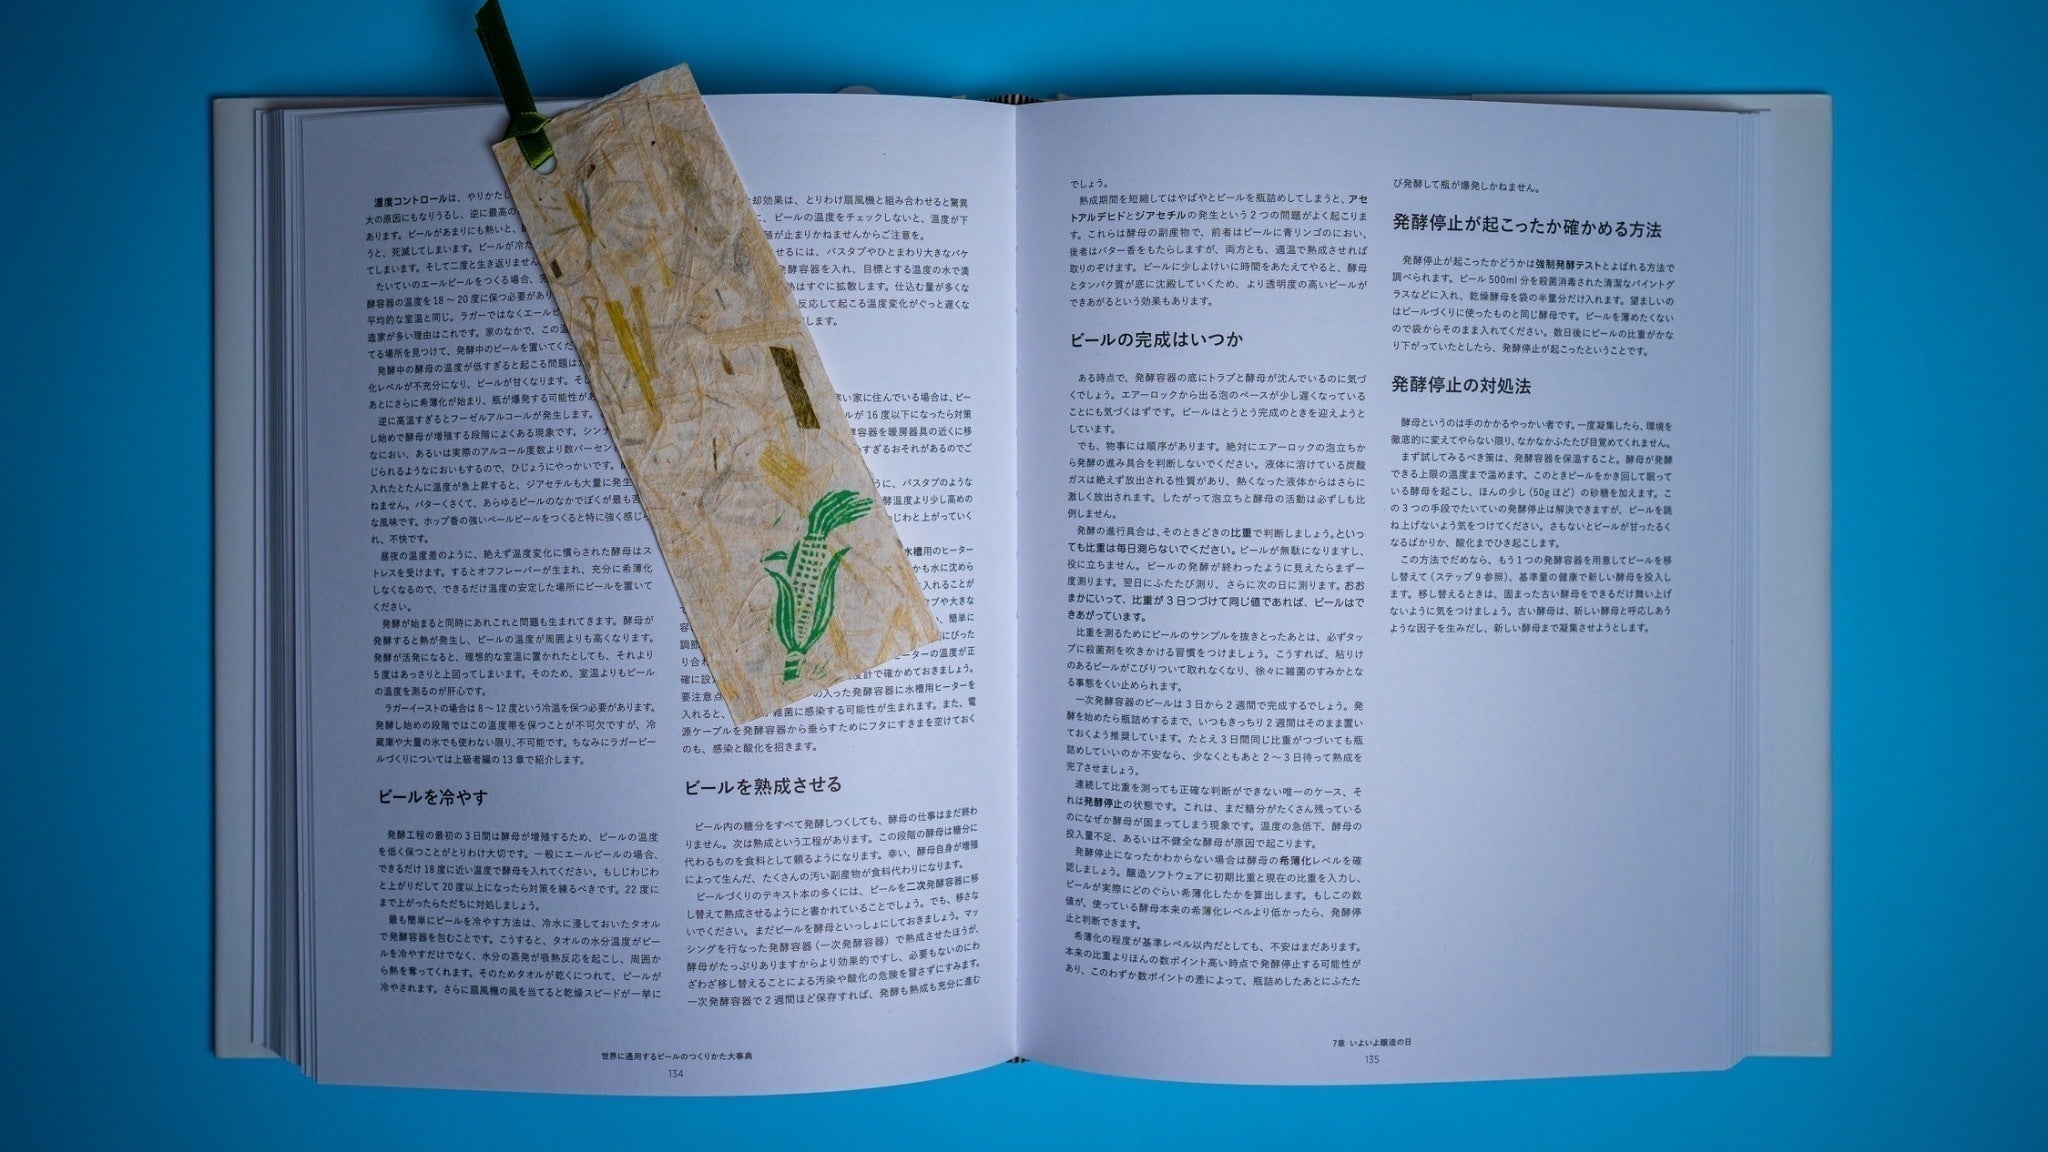 温度コントロールは、やりかたし
大の原因にもなりうるし、逆に最高の
あります。ビールがあまりにも熱いと、
うと、死滅してしまいます。ビールが冷た
てしまいます。そして二度と生き返りません
たいていのエールビールをつくる場合、
酵容器の温度を18～20度に保つ必要があり
平均的な室温と同じ。ラガーではなくエールビ
造家が多い理由はこれです。家のなかで、この温
てる場所を見つけて、発酵中のビールを置いてくだ
発酵中の酵母の温度が低すぎると起こる問題は
化レベルが不充分になり、ビールが甘くなります。そし
あとにさらに希薄化が始まり、瓶が爆発する可能性があ
逆に高温すぎるとフーゼルアルコールが発生します。
し始めで酵母が増殖する段階によくある現象です。シンナ
なにおい、あるいは実際のアルコール度数より数パーセン
じられるようなにおいもするので、ひじょうにやっかいです。
入れたとたんに温度が急上昇すると、ジアセチルも大量に発生
ねません。バターくさくて、あらゆるビールのなかでぼくが最も苦
な風味です。ホップ香の強いペールビールをつくると特に強く感じら
れ、不快です。
昼夜の温度差のように、絶えず温度変化に慣らされた酵母はス
トレスを受けます。するとオフフレーバーが生まれ、充分に希薄化
しなくなるので、できるだけ温度の安定した場所にビールを置いて
ください。
発酵が始まると同時にあれこれと問題も生まれてきます。酵母が
発酵すると熱が発生し、ビールの温度が周囲よりも高くなります。
発酵が活発になると、理想的な室温に置かれたとしても、それより
5度はあっさりと上回ってしまいます。そのため、室温よりもビール
の温度を測るのが肝心です。
ラガーイーストの場合は8～12度という冷温を保つ必要があります。
発酵し始めの段階ではこの温度帯を保つことが不可欠ですが、冷
蔵庫や大量の氷でも使わない限り、不可能です。ちなみにラガービー
ルづくりについては上級者編の13章で紹介します。
ビールを冷やす
発酵工程の最初の3日間は酵母が増殖するため、ビールの温度
を低く保つことがとりわけ大切です。一般にエールビールの場合、
できるだけ18度に近い温度で酵母を入れてください。もしじわじわ
と上がりだして20度以上になったら対策を練るべきです。22度に
まで上がったらただちに対処しましょう。
最も簡単にビールを冷やす方法は、冷水に浸しておいたタオル
で発酵容器を包むことです。こうすると、タオルの水分温度がビー
ルを冷やすだけでなく、水分の蒸発が吸熱反応を起こし、周囲か
ら熱を奪ってくれます。そのためタオルが乾くにつれて、ビールが
冷やされます。さらに扇風機の風を当てると乾燥スピードが一挙に
却効果は、とりわけ扇風機と組み合わせると驚異
に、ビールの温度をチェックしないと、温度が下
殖が止まりかねませんからご注意を。
せるには、バスタブやひとまわり大きなバケ
発酵容器を入れ、目標とする温度の水で満
熱はすぐに拡散します。仕込む量が多くな
反応して起こる温度変化がぐっと遅くな
します。
い家に住んでいる場合は、ビー
ルが16度以下になったら対策
酵容器を暖房器具の近くに移
すぎるおそれがあるのでご
うに、バスタブのような
酵温度より少し高めの
じわと上がっていく
水槽用のヒーター
かも水に沈めら
入れることが
タブや大きな
容
、簡単に
調節
にぴった
り合わ
ーターの温度が正
確に設
度計で確かめておきましょう。
要注意点
の入った発酵容器に水槽用ヒーターを
入れると、
雑菌に感染する可能性が生まれます。また、電
源ケーブルを発酵容器から垂らすためにフタにすきまを空けておく
のも、感染と酸化を招きます。
ビールを熟成させる
ビール内の糖分をすべて発酵しつくしても、酵母の仕事はまだ終わ
りません。次は熟成という工程があります。この段階の酵母は糖分に
代わるものを食料として頼るようになります。幸い、酵母自身が増殖
によって生んだ、たくさんの汚い副産物が食料代わりになります。
ビールづくりのテキスト本の多くには、ビールを二次発酵容器に移
し替えて熟成させるようにと書かれていることでしょう。でも、移さな
いでください。まだビールを酵母といっしょにしておきましょう。マッ
シングを行なった発酵容器（一次発酵容器）で熟成させたほうが、
酵母がたっぷりありますからより効果的ですし、必要もないのにわ
ざわざ移し替えることによる汚染や酸化の危険を冒さずにすみます。
一次発酵容器で2週間ほど保存すれば、発酵も熟成も充分に進む
世界に通用するビールのつくりかた大事典
134
でしょう。
熟成期間を短縮してはやばやとビールを瓶詰めしてしまうと、アセ
トアルデヒドとジアセチルの発生という2つの問題がよく起こりま
す。これらは酵母の副産物で、前者はビールに青リンゴのにおい、
後者はバター香をもたらしますが、両方とも、適温で熟成させれば
取りのぞけます。ビールに少しよけいに時間をあたえてやると、酵母
とタンパク質が底に沈殿していくため、より透明度の高いビールが
できあがるという効果もあります。
ビールの完成はいつか
ある時点で、発酵容器の底にトラブと酵母が沈んでいるのに気づ
くでしょう。エアーロックから出る泡のペースが少し遅くなっている
ことにも気づくはずです。ビールはとうとう完成のときを迎えようと
しています。
でも、物事には順序があります。絶対にエアーロックの泡立ちか
ら発酵の進み具合を判断しないでください。液体に溶けている炭酸
ガスは絶えず放出される性質があり、熱くなった液体からはさらに
激しく放出されます。したがって泡立ちと酵母の活動は必ずしも比
例しません。
発酵の進行具合は、そのときどきの比重で判断しましょう。といっ
ても比重は毎日測らないでください。ビールが無駄になりますし、
役に立ちません。ビールの発酵が終わったように見えたらまず一
度測ります。翌日にふたたび測り、さらに次の日に測ります。おお
まかにいって、比重が3日つづけて同じ値であれば、ビールはで
きあがっています。
比重を測るためにビールのサンプルを抜きとったあとは、必ずタッ
プに殺菌剤を吹きかける習慣をつけましょう。こうすれば、粘りけ
のあるビールがこびりついて取れなくなり、徐々に雑菌のすみかとな
る事態をくい止められます。
一次発酵容器のビールは3日から2週間で完成するでしょう。発
酵を始めたら瓶詰めするまで、いつもきっちり2週間はそのまま置い
ておくよう推奨しています。たとえ3日間同じ比重がつづいても瓶
詰めしていいのか不安なら、少なくともあと2～3日待って熟成を
完了させましょう。
連続して比重を測っても正確な判断ができない唯一のケース、そ
れは発酵停止の状態です。これは、まだ糖分がたくさん残っている
のになぜか酵母が固まってしまう現象です。温度の急低下、酵母の
投入量不足、あるいは不健全な酵母が原因で起こります。
発酵停止になったかわからない場合は酵母の希薄化レベルを確
認しましょう。醸造ソフトウェアに初期比重と現在の比重を入力し、
ビールが実際にどのぐらい希薄化したかを算出します。もしこの数
値が、使っている酵母本来の希薄化レベルより低かったら、発酵停
止と判断できます。
希薄化の程度が基準レベル以内だとしても、不安はまだあります。
本来の比重よりほんの数ポイント高い時点で発酵停止する可能性が
あり、このわずか数ポイントの差によって、瓶詰めしたあとにふたた
び発酵して瓶が爆発しかねません。
発酵停止が起こったか確かめる方法
発酵停止が起こったかどうかは強制発酵テストとよばれる方法で
調べられます。ビール500ml分を殺菌消毒された清潔なパイントグ
ラスなどに入れ、乾燥酵母を袋の半量分だけ入れます。望ましいの
はビールづくりに使ったものと同じ酵母です。ビールを薄めたくない
ので袋からそのまま入れてください。数日後にビールの比重がかな
り下がっていたとしたら、発酵停止が起こったということです。
発酵停止の対処法
酵母というのは手のかかるやっかい者です。一度凝集したら、環境を
徹底的に変えてやらない限り、なかなかふたたび目覚めてくれません。
まず試してみるべき策は、発酵容器を保温すること。酵母が発酵
できる上限の温度まで温めます。このときビールをかき回して眠って
いる酵母を起こし、ほんの少し（50gほど）の砂糖を加えます。こ
の3つの手段でたいていの発酵停止は解決できますが、ビールを跳
ね上げないよう気をつけてください。さもないとビールが甘ったるく
なるばかりか、酸化までひき起こします。
この方法でだめなら、もう1つの発酵容器を用意してビールを移
し替えて（ステップ9参照）、基準量の健康で新しい酵母を投入し
ます。移し替えるときは、固まった古い酵母をできるだけ舞い上げ
ないように気をつけましょう。古い酵母は、新しい酵母と呼応しあう
ような因子を生みだし、新しい酵母まで凝集させようとします。
7章 いよいよ醸造の日
135